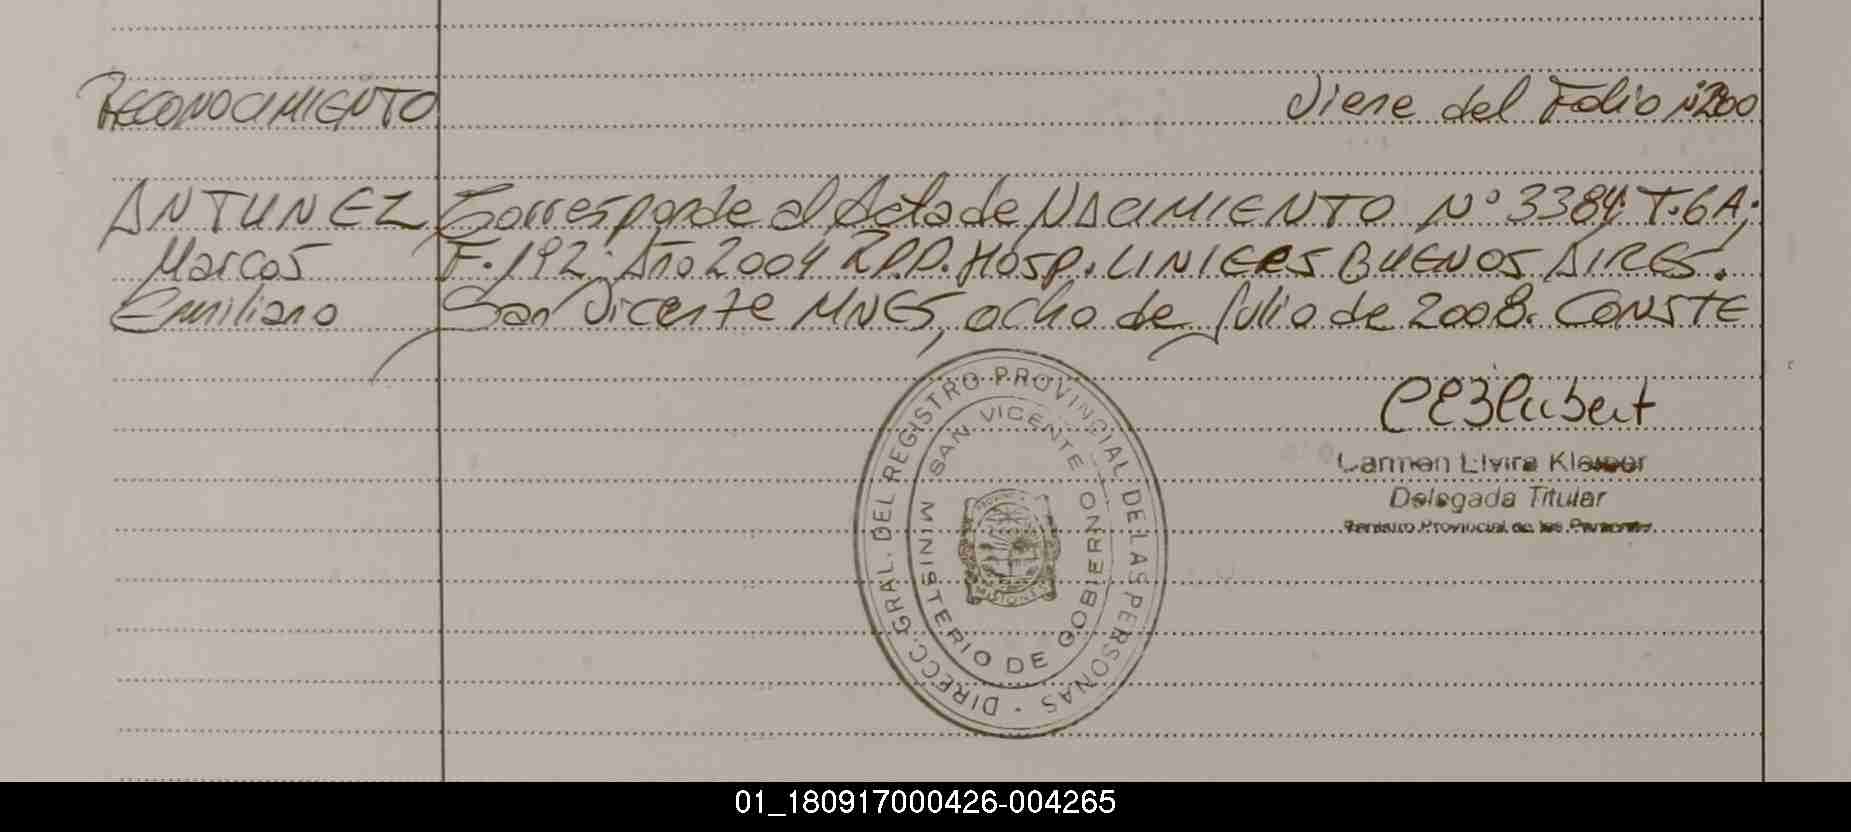 RECONOCIMIENTO
Viene del Folio Nº 200
ANTUNEZ
Marcos
Emiliano
Corresponde al Acta de NACIMIENTO Nº 3384. T. 6A;
F. 192. Año 2004 R.P.P. Hosp. LINIERS BUENOS AIRES.
San Vicente MNES, ocho de julio de 2008. CONSTE
DIRECC. GRAL. DEL REGISTRO PROVINCIAL DE LAS PERSONAS
MINISTERIO DE GOBIERNO
SAN VICENTE
MISIONES
Carmen Elvira
Delegada Titular
Registro Provincial de las Personas
01_180917000426-004265